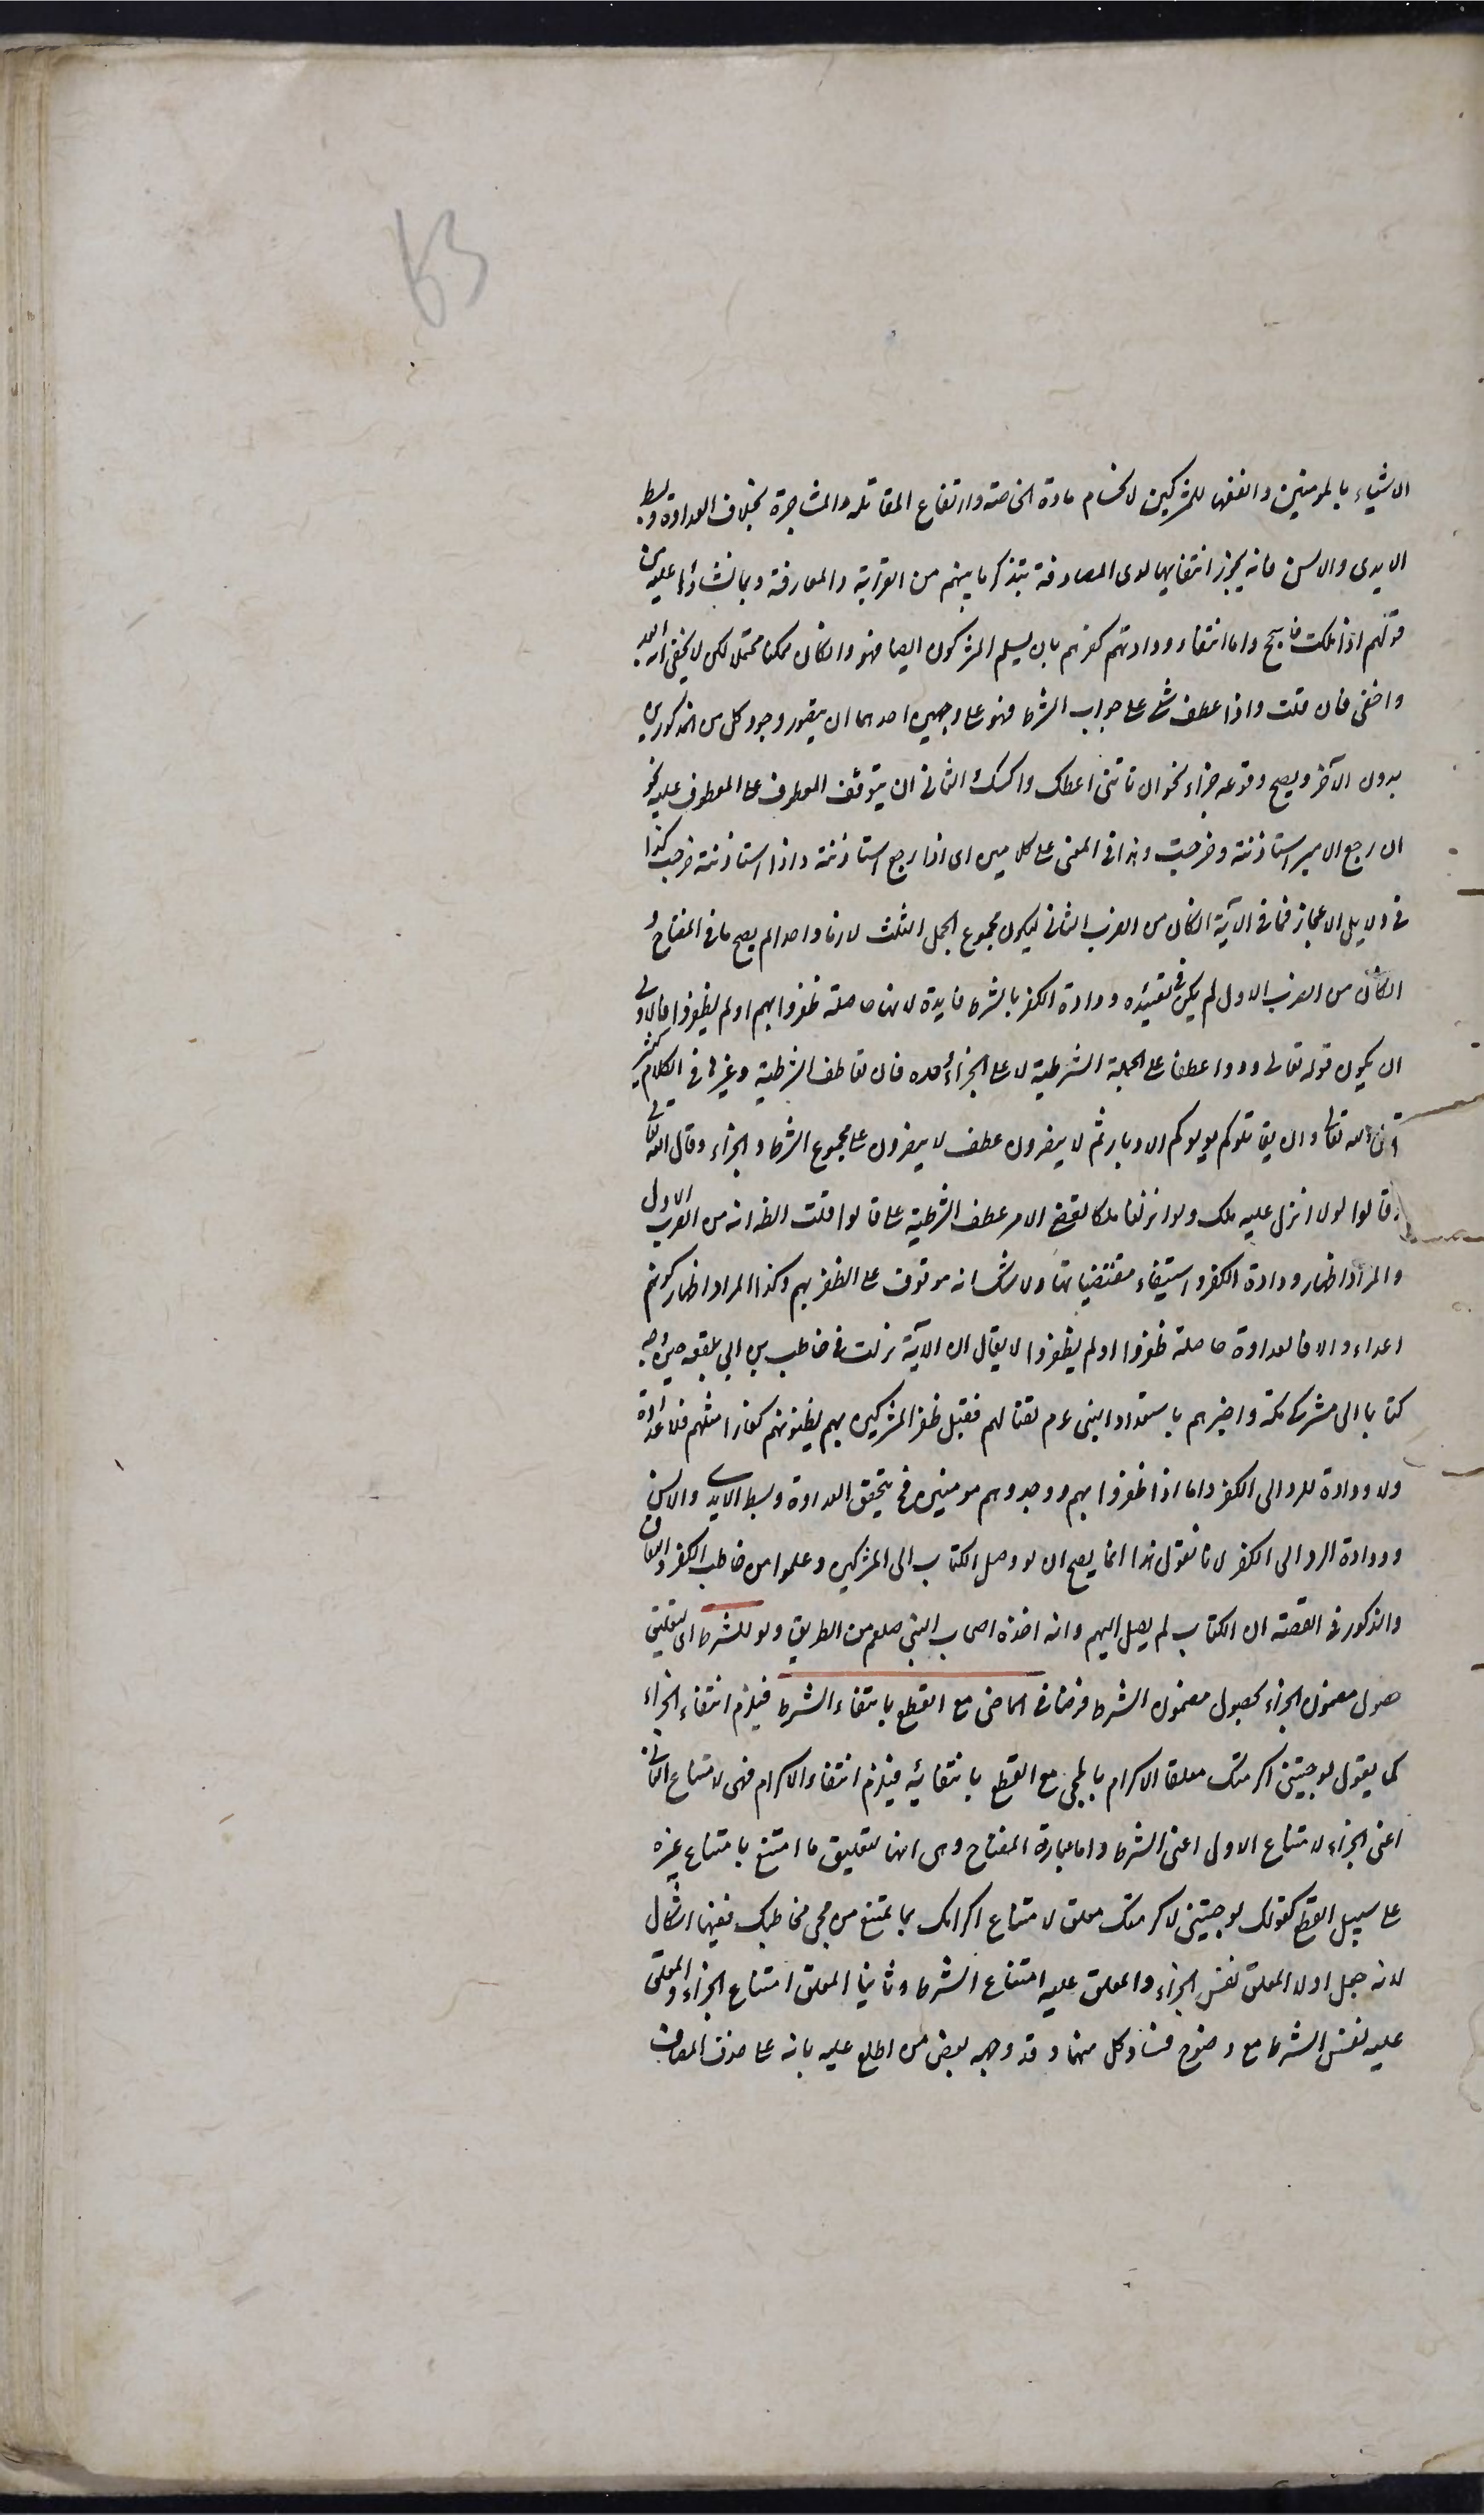 63
الاشياء بالمومنين وانفعها للمشركين لانحسام مادة المخاصمة وارتفاع المقاتلة والمشاجرة بخلاف العداوة وبسط
الايدى والالسن فانه يجوز انتفاءها لدى المصادفة بتذكر ما بينهم من القرابة والمعارفة وبما نشاؤا عليه من
قولهم اذا ملكت فاسجح واما انتفاء ودادتهم كفرهم بان يسلم المشركون ايضا فهو وان كان ممكنا محتملا لكن لا يخفى انه ابعد
واخفى فان قلت واذا عطف شئ على جواب الشرط فهو على وجهين احدهما ان يتصور وجود كل من المذكورين
بدون الآخر ويصح وقوعه جزاء نحو ان تاتنى اعطك واكسك الثانى ان يتوقف المعطوف على المعطوف عليه نحو
ان رجع الامير استاذنته وخرجت وهذا فى المعنى على كلامين اى اذا رجع استاذنته واذا استاذنته خرجت كذا
فى دلايل الاعجاز فما فى الآية ان كان من الضرب الثانى ليكون مجموع الجمل الثلث لازما واحدا لم يصح ما فى المفتاح و
ان كان من الضرب الاول لم يكن فى تقييد ودادة الكفر بالشرط فايدة لانها حاصلة ظفروا بهم او لم يظفروا فالاولى
ان يكون قوله تعالى وودوا عطفا على الجملة الشرطية لا على الجزاء وحده فان تعاطف الشرطية وغيرها فى الكلام كثير
قال الله تعالى وان يقاتلوكم يولوكم الادبار ثم لا ينصرون عطف لا ينصرون على مجموع الشرط والجزاء وقال الله تعالى
وقالوا لولا انزل عليه ملك ولو انزلنا ملكا لقضى الامر عطف الشرطية على قالوا قلت الظ انه من الضرب الاول
والمراد اظهار ودادة الكفر واستيفاء مقتضياتها ولا شك انه موقوف على الظفر بهم وكذا المراد اظهار كونهم
اعداء والا فالعداوة حاصلة ظفروا او لم يظفروا لا يقال ان الآية نزلت فى حاطب بن ابى بلتعة حين وجه
كتابا الى مشركى مكة واخبرهم باستعداد النبى عم لقتالهم فقبل ظفر المشركين بهم يظنونهم كفارا مثلهم فلا عداوة
ولا ودادة للرد الى الكفر واما اذا ظفروا بهم ووجدوهم مومنين فح يتحقق العداوة وبسط الايدى والالسن
وودادة الرد الى الكفر لانا نقول هذا انما يصح ان لو وصل الكتاب الى المشركين وعلموا من حاطب الكفر والنفاق
والمذكور فى القصة ان الكتاب لم يصل اليهم وانه اخذه اصحاب النبى صلعم من الطريق ولو للشرط اى لتعليق
حصول مضمون الجزاء بحصول مضمون الشرط فرضا فى الماضى مع القطع بانتفاء الشرط فيلزم انتفاء الجزاء
كما يقول لو جئتنى اكرمتك معلقا الاكرام بالمجئ مع القطع بانتفائه فيلزم انتفاء الاكرام فهى لامتناع الثانى
اعنى الجزاء لامتناع الاول اعنى الشرط واما عبارة المفتاح وهى انها لتعليق ما امتنع بامتناع غيره
على سبيل القطع كقولك لو جئتنى لاكرمتك معلق لامتناع اكرامك بما يمتنع من مجئ مخاطبك ففيها اشكال
لانه جعل اولا المعلق نفس الجزاء والمعلق عليه امتناع الشرط وثانيا المعلق امتناع الجزاء والمعلق
عليه نفس الشرط مع وضوح فساد كل منهما وقد وجهه بعض من اطلع عليه بانه على حذف المضاف